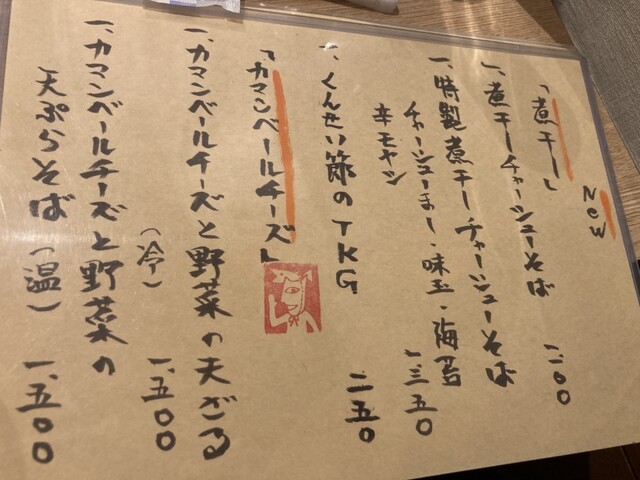 New
「煮干し」
一、煮干しチャーシューそば 一、一〇〇
一、特製煮干しチャーシューそば
チャーシューまし・味玉・海苔
辛モヤシ 一、三五〇
一、くんせい節のTKG 二五〇
「カマンベールチーズ」
一、カマンベールチーズと野菜の天ざる
（冷） 一、五〇〇
一、カマンベールチーズと野菜の
天ぷらそば（温） 一、五〇〇